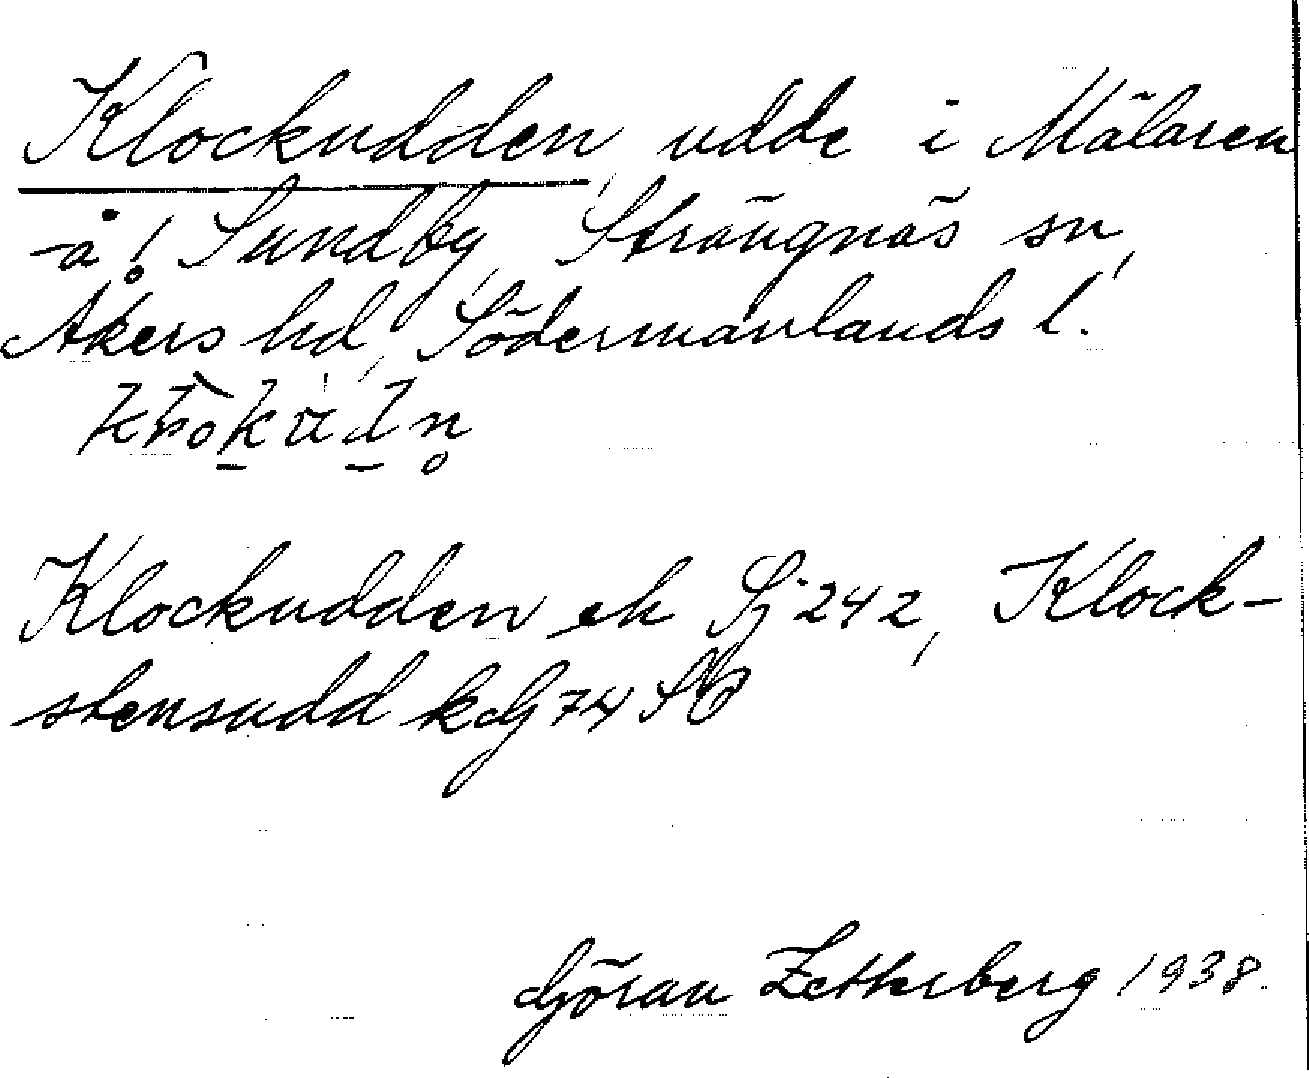 Klockudden, udde i Mälaren
å Sundby, Strängnäs sn,
Åkers hd, Södermanlands l.
Klockudden ek Sj 242, Klock-
stensudd kG 74 SO
Göran Zetterberg 1938.